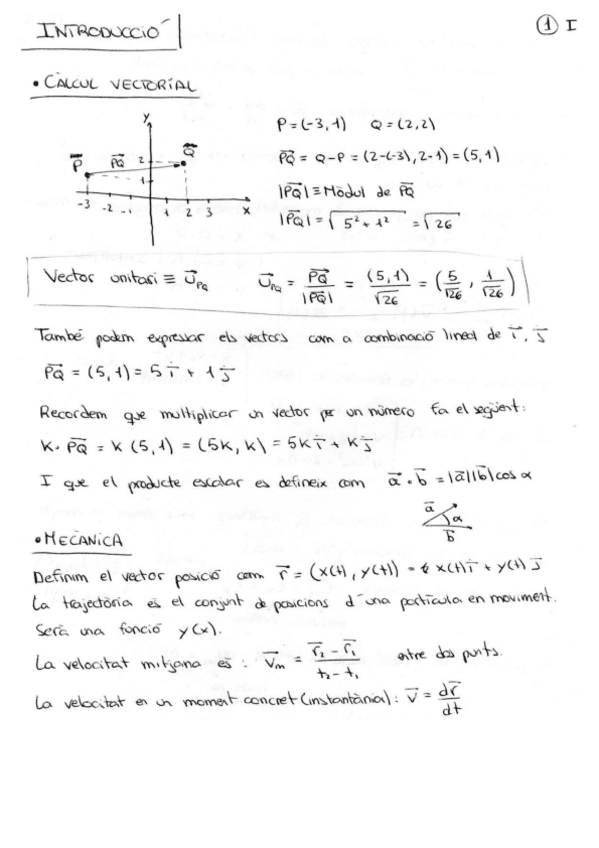 INTRODUCCIÓ
1 I
• CÀLCUL VECTORIAL
y
P⃗ PQ⃗ Q⃗
2
1
-3 -2 -1 1 2 3 x
P = (-3, 1) Q = (2, 2)
PQ⃗ = Q - P = (2-(-3), 2-1) = (5, 1)
|PQ⃗| ≡ Mòdul de PQ⃗
|PQ⃗| = √(5² + 1²) = √26
Vector unitari ≡ U⃗PQ U⃗PQ = PQ⃗/|PQ⃗| = (5, 1)/√26 = (5/√26, 1/√26)
També podem expressar els vectors com a combinació lineal de i⃗, j⃗
PQ⃗ = (5, 1) = 5 i⃗ + 1 j⃗
Recordem que multiplicar un vector per un número fa el següent:
K · PQ⃗ = K (5, 1) = (5K, K) = 5K i⃗ + K j⃗
I que el producte escalar es defineix com a⃗ · b⃗ = |a⃗||b⃗| cos α
a⃗
α
b⃗
• MECÀNICA
Definim el vector posició com r⃗ = (x(t), y(t)) = x(t) i⃗ + y(t) j⃗
La trajectòria és el conjunt de posicions d'una partícula en moviment.
Serà una funció y(x).
La velocitat mitjana és : v⃗m = (r⃗2 - r⃗1)/(t2 - t1) entre dos punts.
La velocitat en un moment concret (instantània) : v⃗ = dr⃗/dt